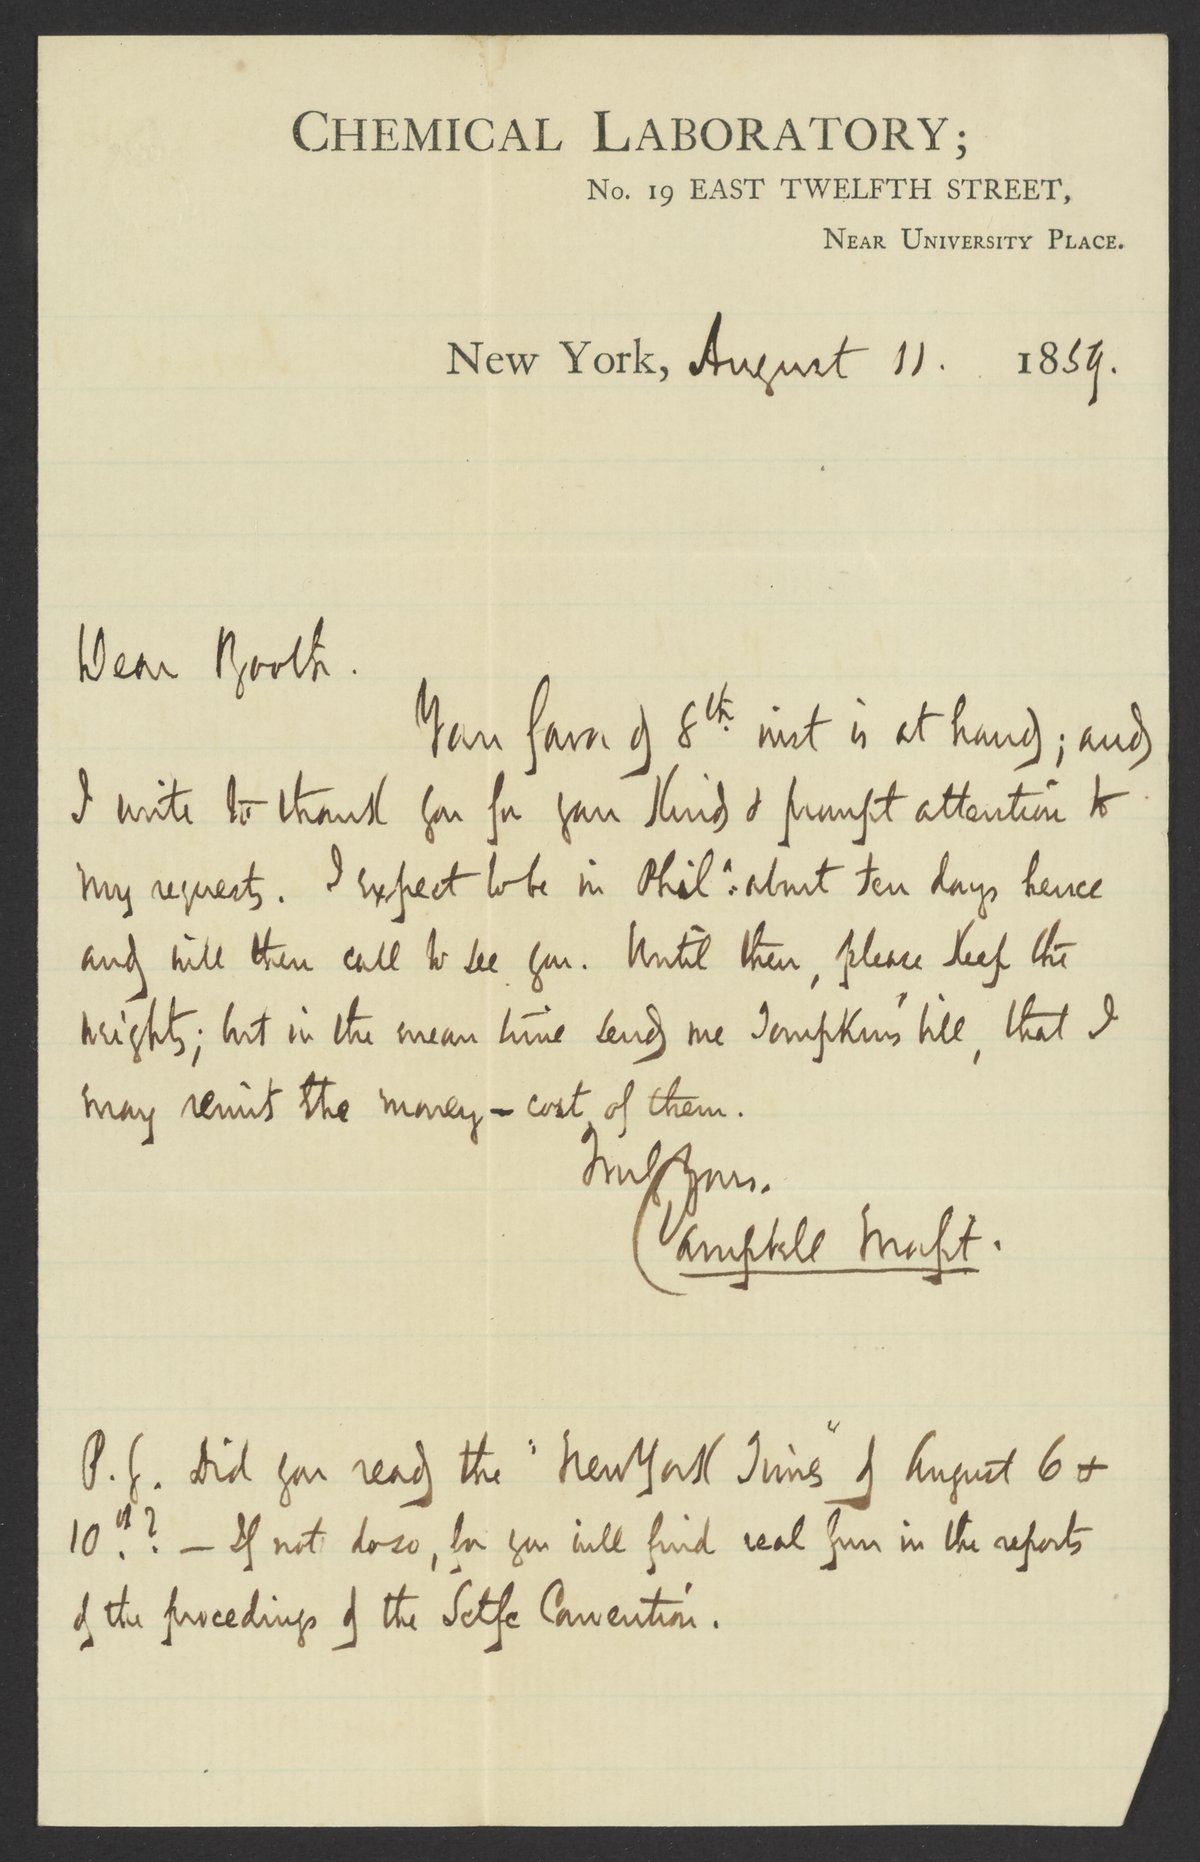 CHEMICAL LABORATORY;
No. 19 EAST TWELFTH STREET,
NEAR UNIVERSITY PLACE.
New York, August 11. 1859.
Dear Booth.
Your favor of 8th inst is at hand; and
I write to thank you for your kind & prompt attention to
my requests. I expect to be in Phila. about ten days hence
and will then call to see you. Until then, please keep the
weights; but in the mean time send me Tompkins' bill, that I
may remit the money - cost of them.
Truly Yours.
Campbell Morfit.
P.S. Did you read the "New York Times" of August 6 &
10th? — If not do so, for you will find real fun in the reports
of the procedings of the Sctfc Convention.